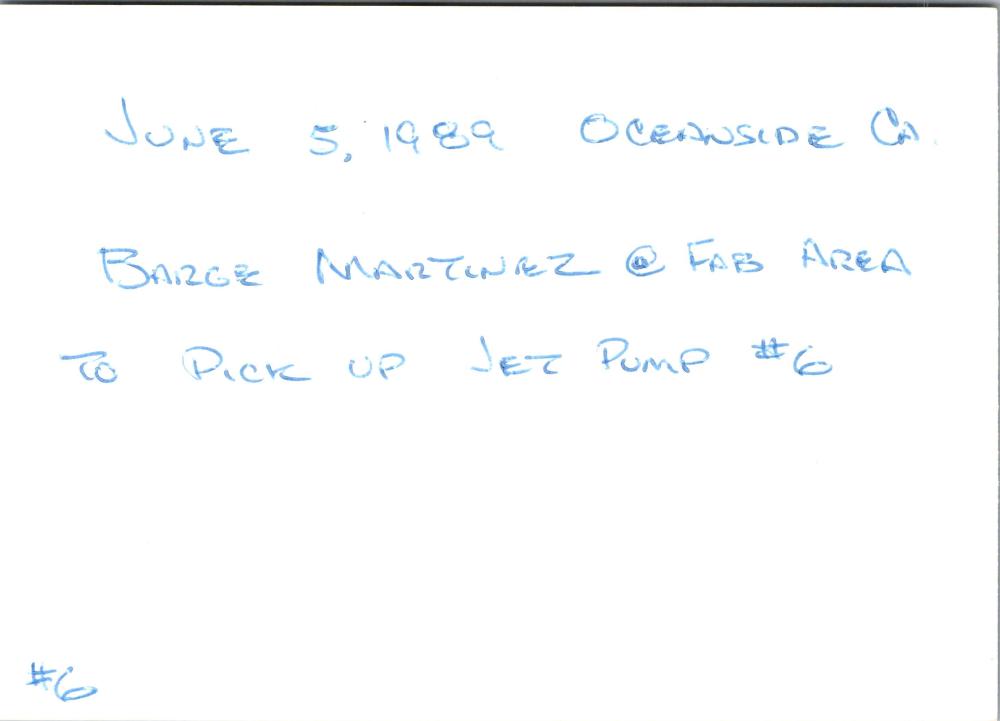 June 5, 1989 Oceanside Ca.
Barge Martinez @ Fab Area
to Pick up Jet Pump #6
#6